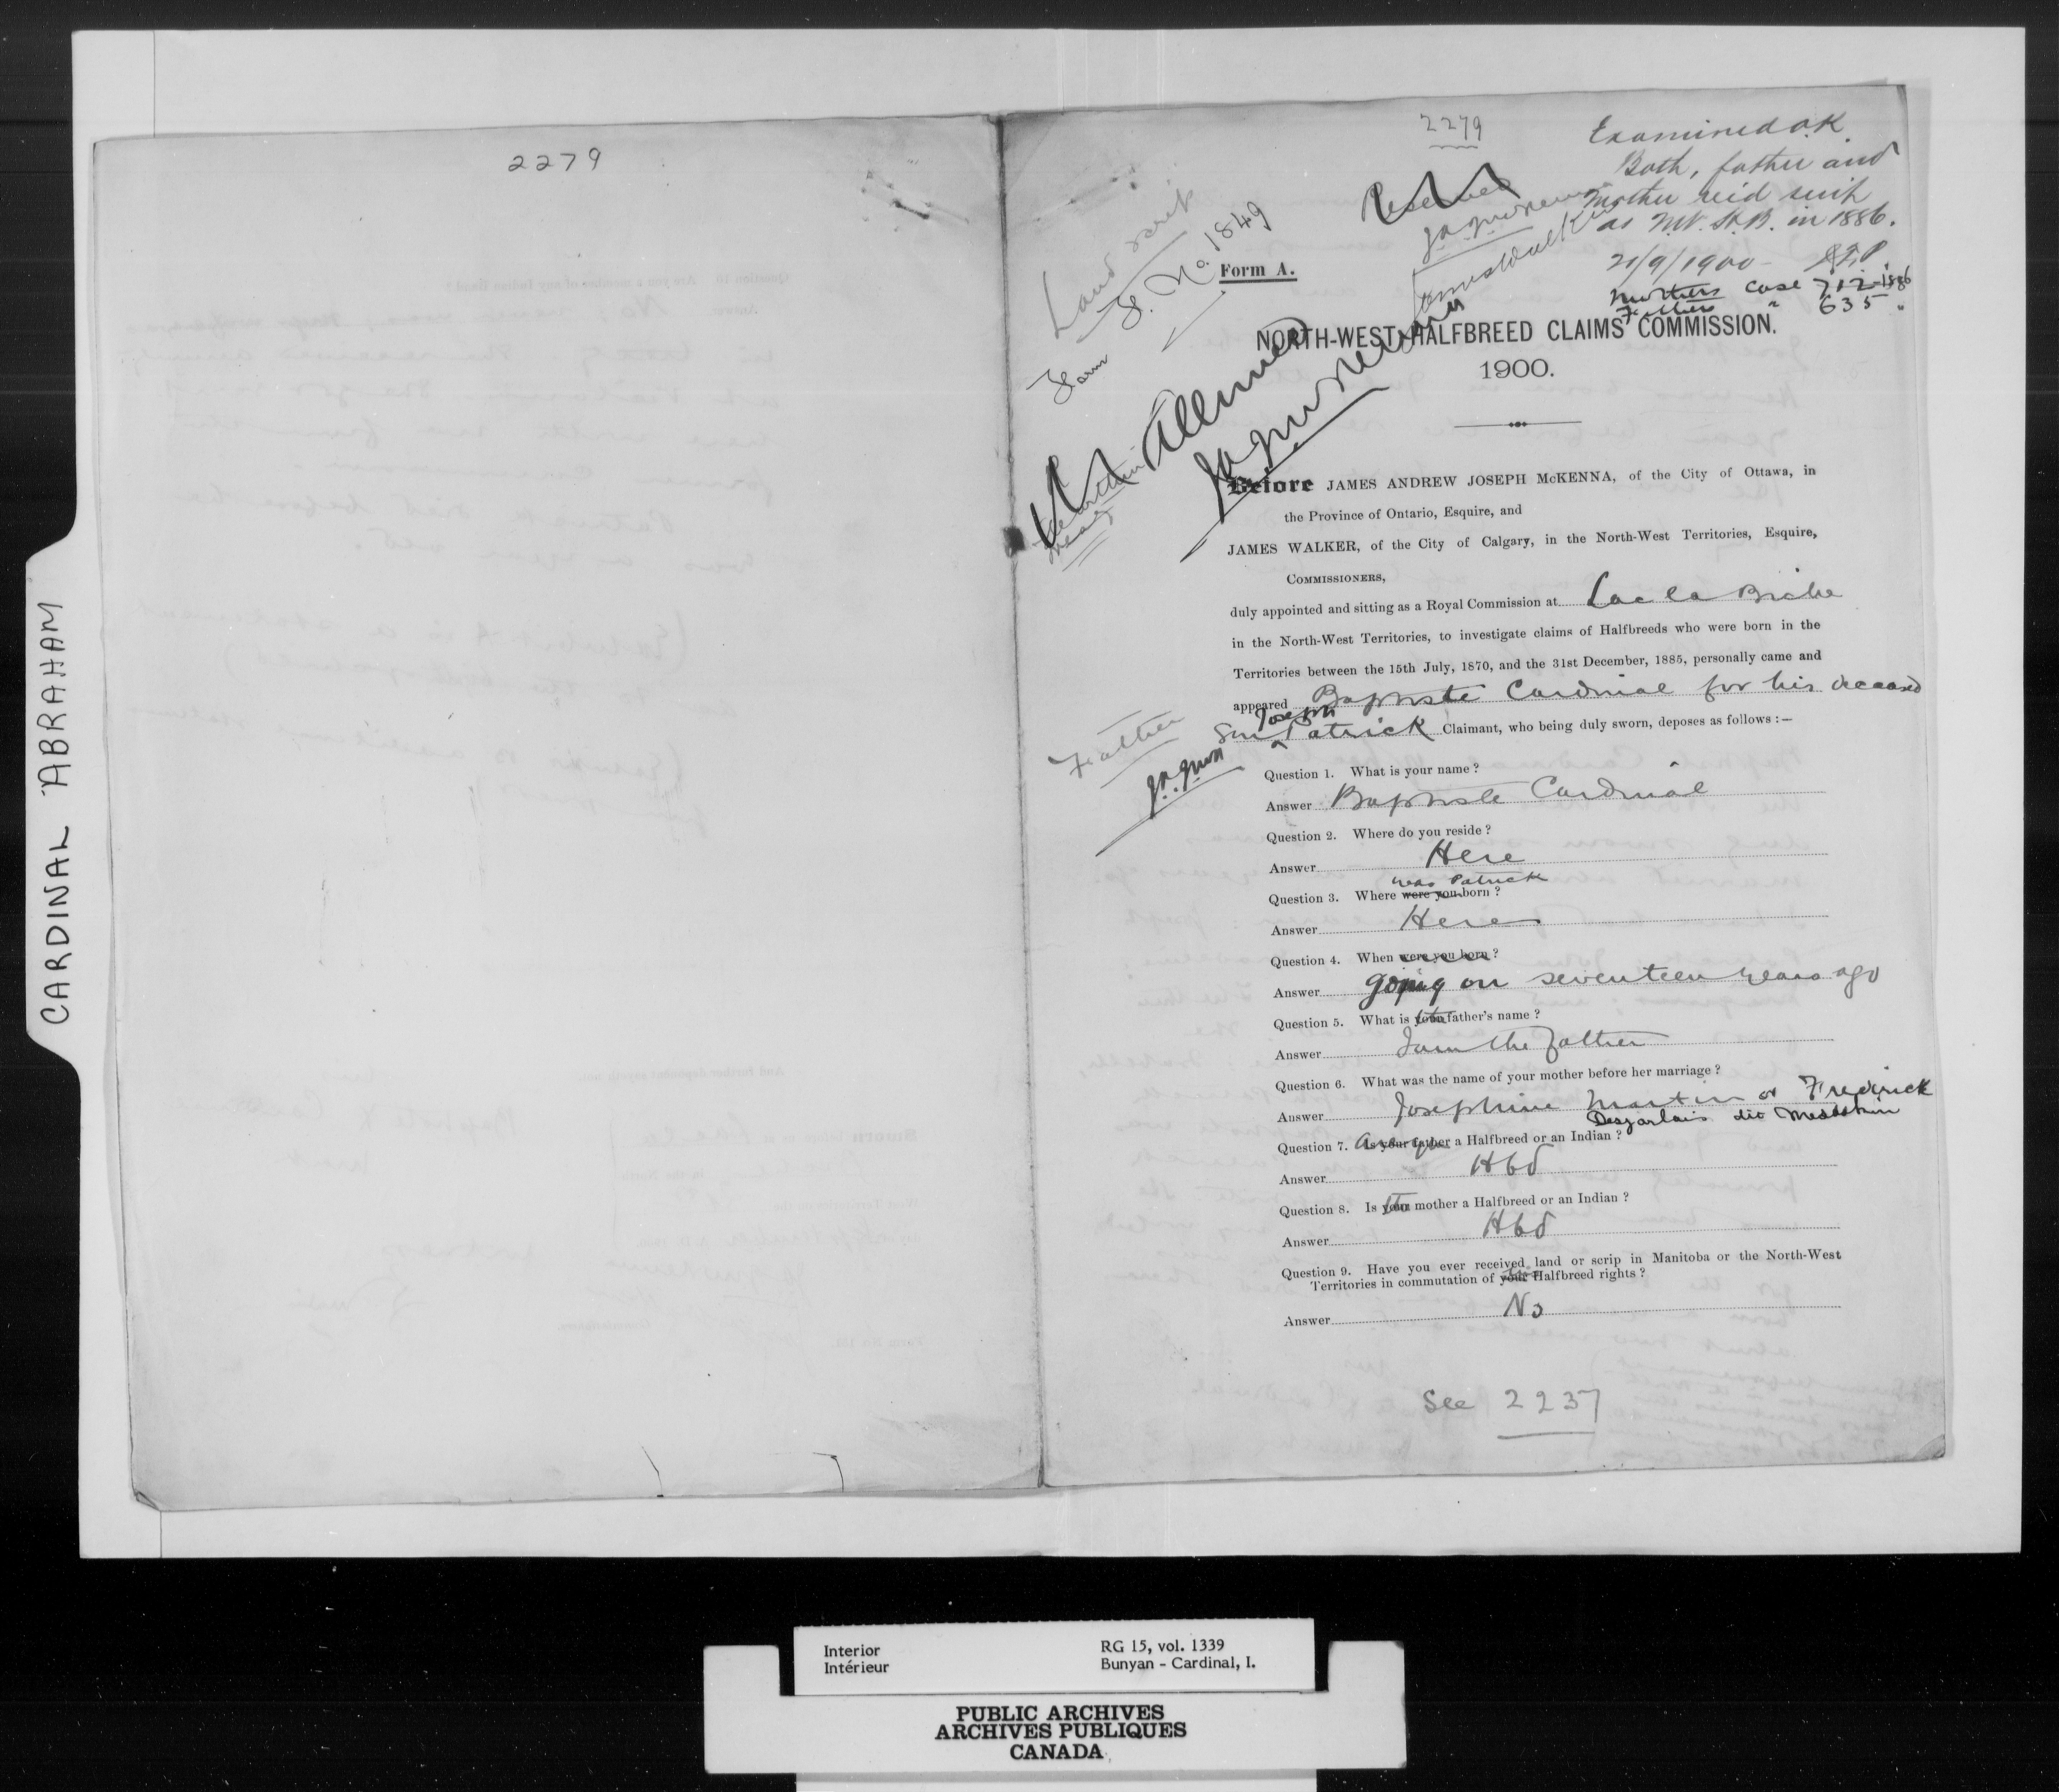 CARDINAL ABRAHAM
2279
2279
Examined O.K.
Both, father and
mother rec'd scrip
as N.W. H.B. in 1886.
21/9/1900
Mothers case 712-1886
Father " 635 "
Land scrip
Form F. No. 1849
Reserved
J.A.J. McKenna
James Walker
Form A.
NORTH-WEST HALFBREED CLAIMS COMMISSION.
1900.
Allowed
J.A.J. McKenna
Before JAMES ANDREW JOSEPH McKENNA, of the City of Ottawa, in
the Province of Ontario, Esquire, and
JAMES WALKER, of the City of Calgary, in the North-West Territories, Esquire,
COMMISSIONERS,
duly appointed and sitting as a Royal Commission at Lac la Biche
in the North-West Territories, to investigate claims of Halfbreeds who were born in the
Territories between the 15th July, 1870, and the 31st December, 1885, personally came and
appeared Baptiste Cardinal for his deceased
Joseph
son Patrick Claimant, who being duly sworn, deposes as follows :—
Father
J.A.J. McK
Question 1. What is your name ?
Answer Baptiste Cardinal
Question 2. Where do you reside ?
Answer Here
was Patrick
Question 3. Where were you born ?
Answer Here
Question 4. When were you born ?
Answer going on seventeen years ago
Question 5. What is your father's name ?
Answer I am the father
Question 6. What was the name of your mother before her marriage ?
Answer Josephine Martin or Fredrick
Desjarlais dit
Question 7. Are you Is your father a Halfbreed or an Indian ?
Answer Hbd
Question 8. Is your mother a Halfbreed or an Indian ?
Answer Hbd
Question 9. Have you ever received land or scrip in Manitoba or the North-West
Territories in commutation of your Halfbreed rights ?
Answer No
See 2237
Interior
Intérieur
RG 15, vol. 1339
Bunyan - Cardinal, I.
PUBLIC ARCHIVES
ARCHIVES PUBLIQUES
CANADA